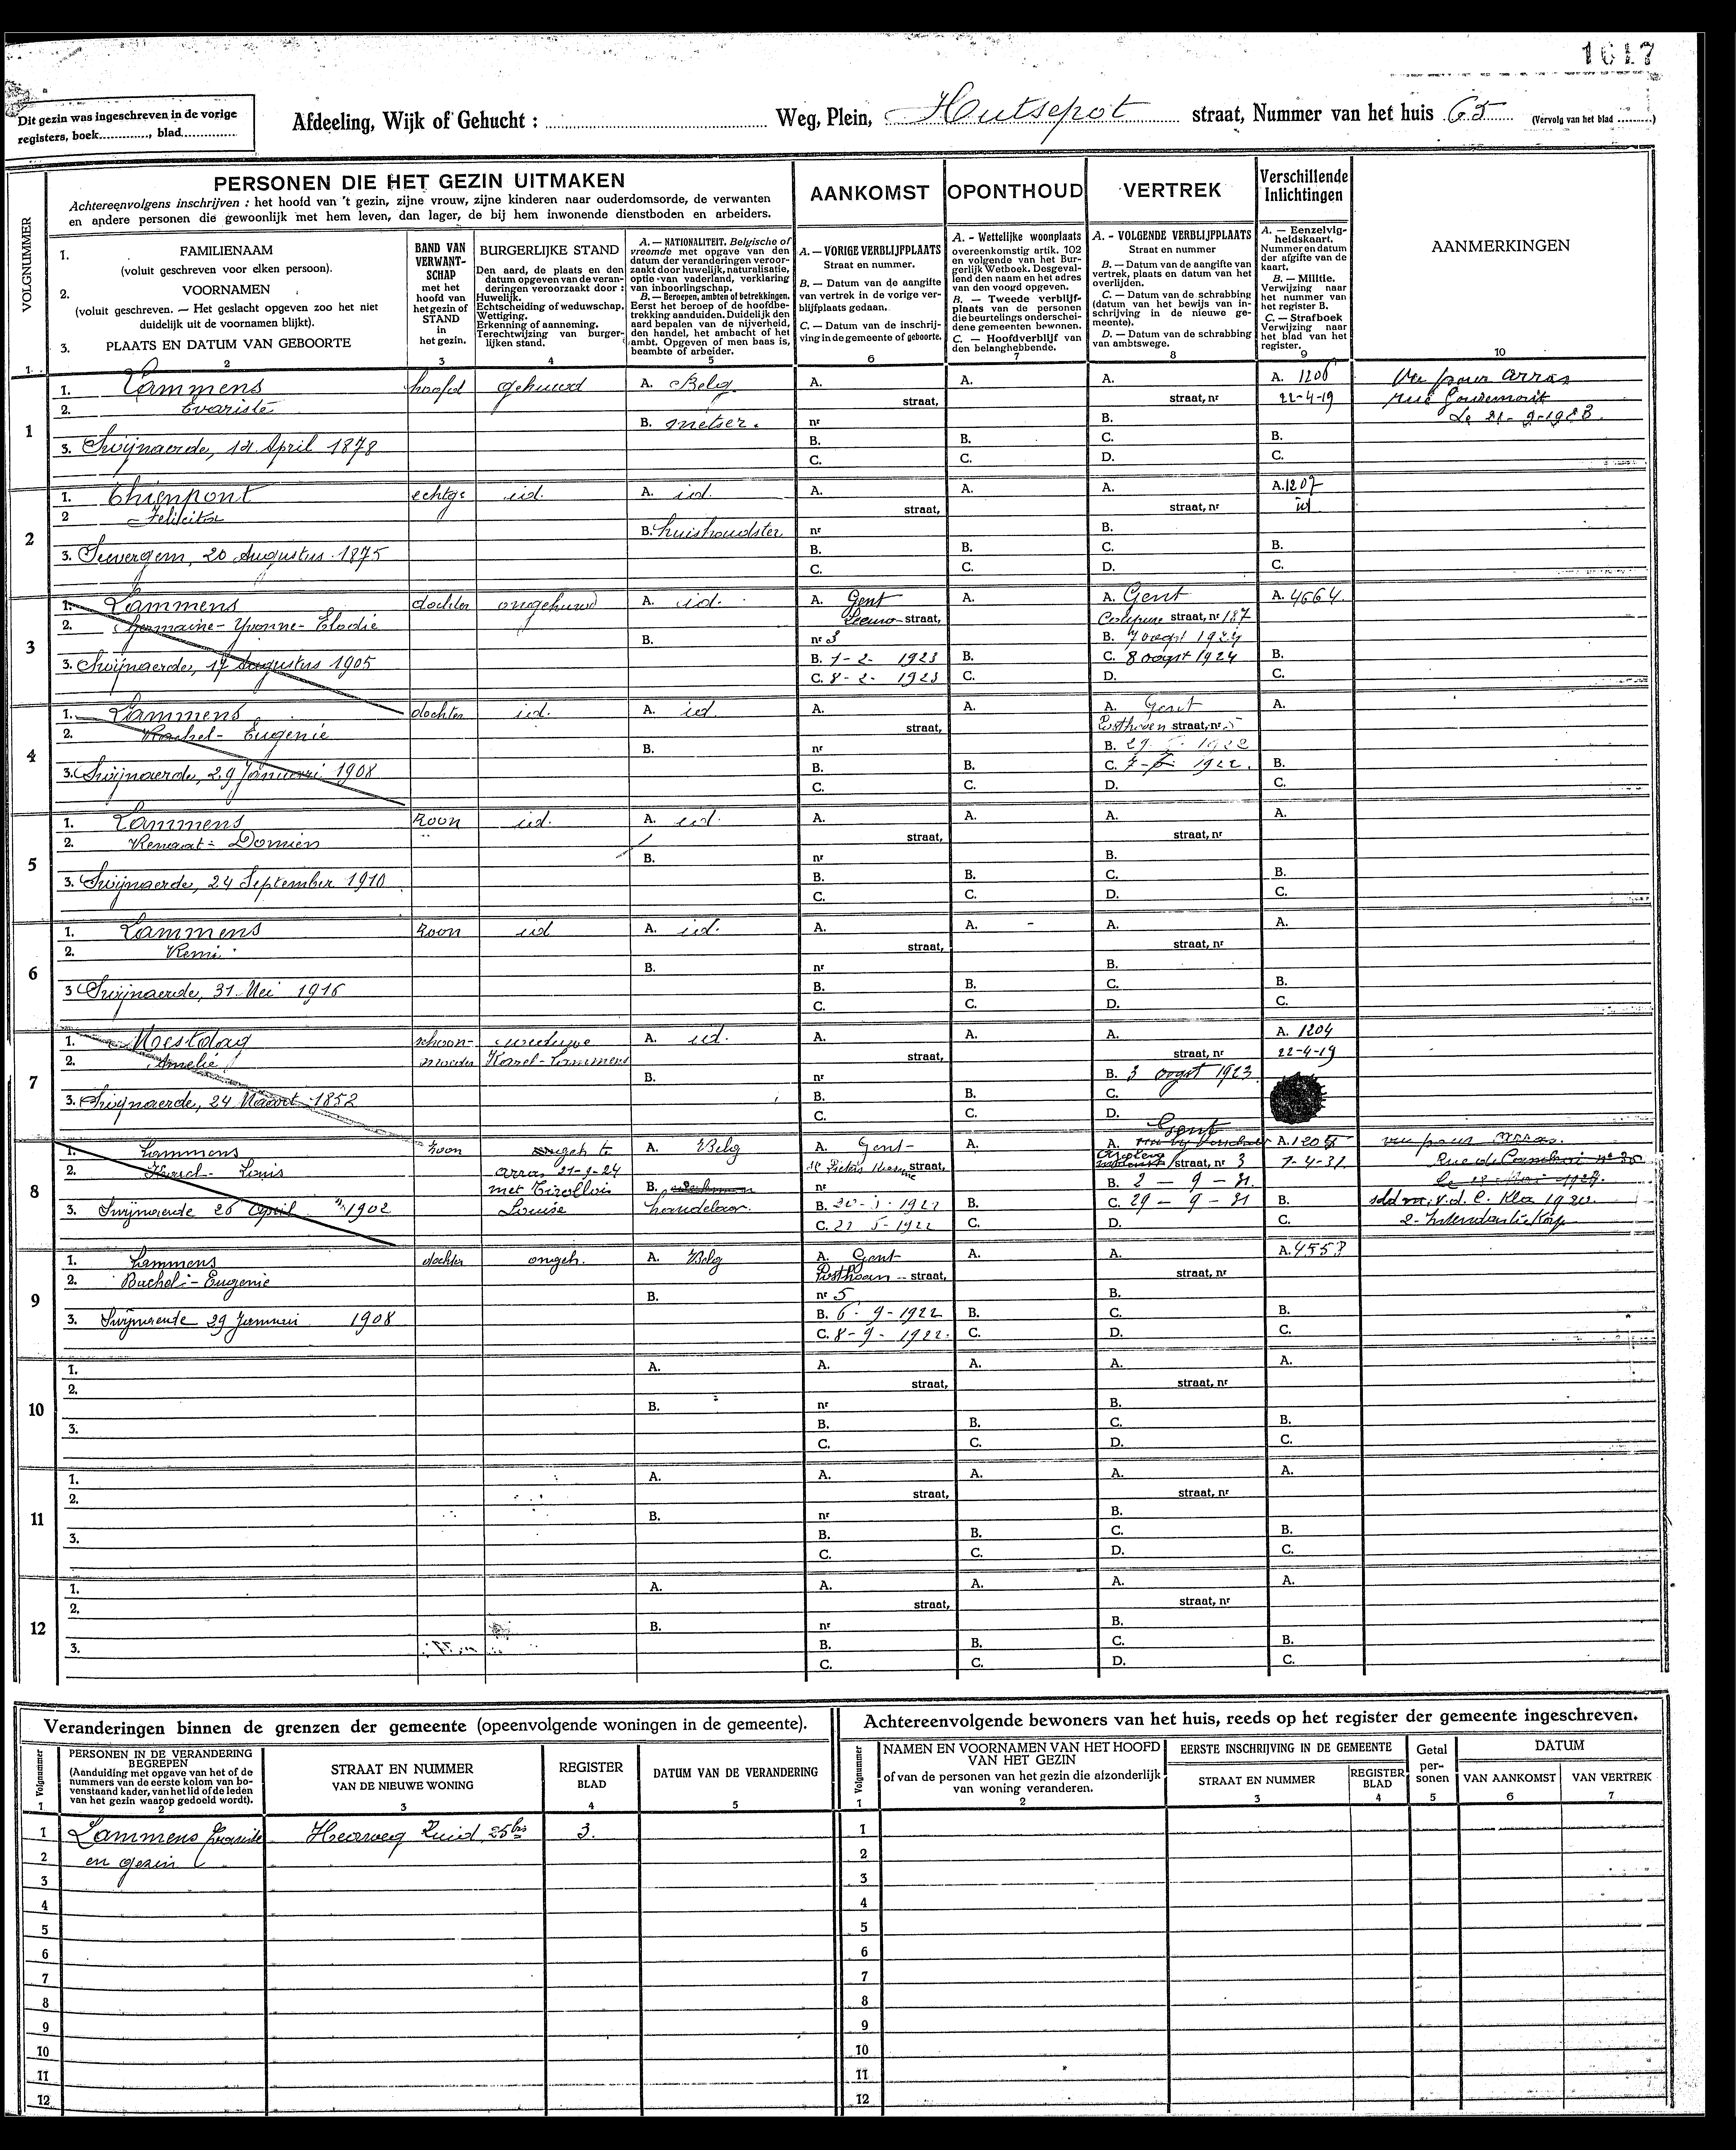 1617
Dit gezin was ingeschreven in de vorige
registers, boek............, blad..............
Afdeeling, Wijk of Gehucht : .......... Weg, Plein, Hutsepot straat, Nummer van het huis 65 (Vervolg van het blad .........)
VOLGNUMMER
PERSONEN DIE HET GEZIN UITMAKEN
Achtereenvolgens inschrijven : het hoofd van 't gezin, zijne vrouw, zijne kinderen naar ouderdomsorde, de verwanten
en andere personen die gewoonlijk met hem leven, dan lager, de bij hem inwonende dienstboden en arbeiders.
AANKOMST
OPONTHOUD
VERTREK
Verschillende
Inlichtingen
AANMERKINGEN
1. FAMILIENAAM
(voluit geschreven voor elken persoon).
2. VOORNAMEN
(voluit geschreven. — Het geslacht opgeven zoo het niet
duidelijk uit de voornamen blijkt).
3. PLAATS EN DATUM VAN GEBOORTE
BAND VAN
VERWANT-
SCHAP
met het
hoofd van
het gezin of
STAND
in
het gezin.
BURGERLIJKE STAND
Den aard, de plaats en den
datum opgeven van de veran-
deringen veroorzaakt door :
Huwelijk.
Echtscheiding of weduwschap.
Wettiging.
Erkenning of aanneming.
Terechtwijzing van burger-
lijken stand.
A. — NATIONALITEIT. Belgische of
vreemde met opgave van den
datum der veranderingen veroor-
zaakt door huwelijk, naturalisatie,
optie van vaderland, verklaring
van inboorlingschap.
B. — Beroepen, ambten of betrekkingen.
Eerst het beroep of de hoofdbe-
trekking aanduiden. Duidelijk den
aard bepalen van de nijverheid,
den handel, het ambacht of het
ambt. Opgeven of men baas is,
beambte of arbeider.
A. — VORIGE VERBLIJFPLAATS
Straat en nummer.
B. — Datum van de aangifte
van vertrek in de vorige ver-
blijfplaats gedaan.
C. — Datum van de inschrij-
ving in de gemeente of geboorte.
A. - Wettelijke woonplaats
overeenkomstig artik. 102
en volgende van het Bur-
gerlijk Wetboek. Desgeval-
lend den naam en het adres
van den voogd opgeven.
B. — Tweede verblijf-
plaats van de personen
die beurtelings onderschei-
dene gemeenten bewonen.
C. — Hoofdverblijf van
den belanghebbende.
A. - VOLGENDE VERBLIJFPLAATS
Straat en nummer
B. — Datum van de aangifte van
vertrek, plaats en datum van het
overlijden.
C. — Datum van de schrabbing
(datum van het bewijs van in-
schrijving in de nieuwe ge-
meente).
D. — Datum van de schrabbing
van ambtswege.
A. — Eenzelvig-
heidskaart.
Nummer en datum
der afgifte van de
kaart.
B. — Militie.
Verwijzing naar
het nummer van
het register B.
C. — Strafboek
Verwijzing naar
het blad van het
register.
1 2 3 4 5 6 7 8 9 10
1
1. Lammens hoofd gehuwd A. Belg A. A. A. A. 1206 Vu pour Arras
2. Evariste straat, straat, nr 22-4-19 rue
B. metser. nr B. Le 21-9-1923.
3. Swijnaerde, 14 April 1878 B. B. C. B.
C. C. D. C.
2
1. Thienpont echtge id. A. id. A. A. A. A. 1207
2 Felicita straat, straat, nr id
B. huishoudster nr B.
3. Seevergem, 20 Augustus 1875 B. B. C. B.
C. C. D. C.
3
1. Lammens dochter ongehuwd A. id. A. Gent A. A. Gent A. 4664
2. Germaine - Yvonne - Elodie Leeuw straat, straat, nr 187
B. nr 3 B. 7 oogst 1924
3. Swijnaerde, 17 Augustus 1905 B. 7-2- 1923 B. C. 8 oogst 1924 B.
C. 8-2- 1923 C. D. C.
4
1. Lammens dochter id. A. id. A. A. A. Gent A.
2. Rachel - Eugenie straat, Posthoorn straat, nr 5
B. nr B. 29 1922
3. Swijnaerde, 29 Januari 1908 B. B. C. 1922. B.
C. C. D. C.
5
1. Lammens zoon id. A. id. A. A. A. A.
2. Remaat - Domien straat, straat, nr
B. nr B.
3. Swijnaerde, 24 September 1910 B. B. C. B.
C. C. D. C.
6
1. Lammens zoon id A. id. A. A. A. A.
2. Remi straat, straat, nr
B. nr B.
3 Swijnaerde, 31 Mei 1916 B. B. C. B.
C. C. D. C.
7
1. Mestdag schoon- weduwe A. id. A. A. A. A. 1204
2. Amelie moeder Karel - Lammens straat, straat, nr 22-4-19
B. nr B. 3 oogst 1923
3. Swijnaerde, 24 Maart 1852 B. B. C.
C. C. D.
8
Gent
1. Lammens zoon ongeh te A. Belg A. Gent A. A. A. 1205 vu pour Arras.
2. Karel - Louis Arras 21-9-24 straat, straat, nr 3 7-4-31 Rue de Cambrai No 30
met Tirollois B. nr B. 2 - 9 - 31. Le 12 Mai 1927.
3. Swijnaerde 26 April 1902 Louise handelaar. B. 20-5-1922 B. C. 29 - 9 - 31 B. sdd m. v. d. C. Klas 1922.
C. 22 5-1922 C. D. C. 2- Intendantie Korp
9
1. Lammens dochter ongeh. A. Belg A. Gent A. A. A. 4558
2. Rachel - Eugenie Posthoorn straat, straat, nr
B. nr 5 B.
3. Swijnaerde 29 Januari 1908 B. 6-9-1922 B. C. B.
C. 8-9-1922. C. D. C.
10
1. A. A. A. A. A.
2. straat, straat, nr
B. nr B.
3. B. B. C. B.
C. C. D. C.
11
1. A. A. A. A. A.
2. straat, straat, nr
B. nr B.
3. B. B. C. B.
C. C. D. C.
12
1. A. A. A. A. A.
2. straat, straat, nr
B. nr B.
3. B. B. C. B.
C. C. D. C.
Veranderingen binnen de grenzen der gemeente (opeenvolgende woningen in de gemeente).
Volgnummer
PERSONEN IN DE VERANDERING
BEGREPEN
(Aanduiding met opgave van het of de
nummers van de eerste kolom van bo-
venstaand kader, van het lid of de leden
van het gezin waarop gedoeld wordt).
STRAAT EN NUMMER
VAN DE NIEUWE WONING
REGISTER
BLAD
DATUM VAN DE VERANDERING
1 2 3 4 5
1 Lammens Evariste Heerweg Zuid 25bis 3.
2 en gezin
3
4
5
6
7
8
9
10
11
12
Achtereenvolgende bewoners van het huis, reeds op het register der gemeente ingeschreven.
Volgnummer
NAMEN EN VOORNAMEN VAN HET HOOFD
VAN HET GEZIN
of van de personen van het gezin die afzonderlijk
van woning veranderen.
EERSTE INSCHRIJVING IN DE GEMEENTE
STRAAT EN NUMMER
REGISTER
BLAD
Getal
per-
sonen
DATUM
VAN AANKOMST
VAN VERTREK
1 2 3 4 5 6 7
1
2
3
4
5
6
7
8
9
10
11
12